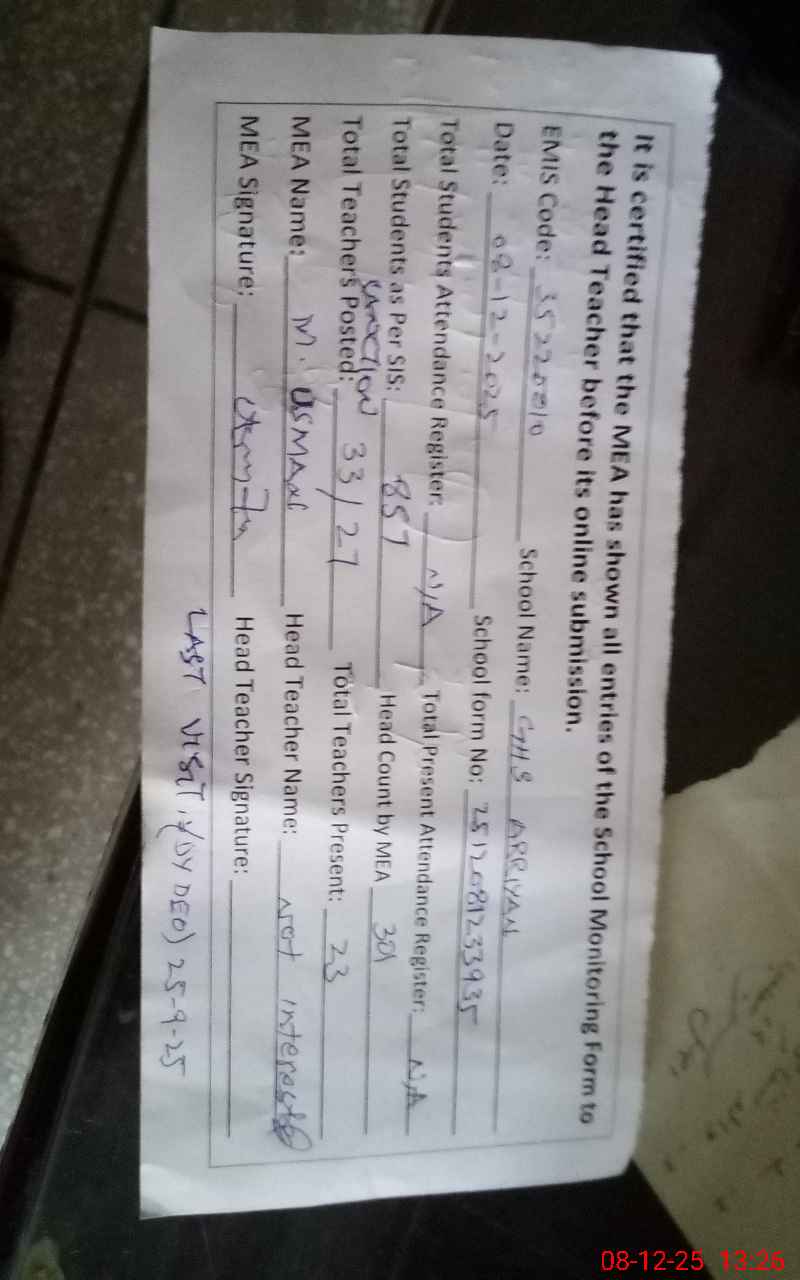 It is certified that the MEA has shown all entries of the School Monitoring Form to
the Head Teacher before its online submission.
EMIS Code: 35220010 School Name: GHS ARRIYAN
Date: 08-12-2025 School form No: 2512081233935
Total Students Attendance Register: N/A Total Present Attendance Register: N/A
Total Students as Per SIS: 857 Head Count by MEA 301
SANCTION
Total Teachers Posted: 33/27 Total Teachers Present: 23
MEA Name: M. USMAN Head Teacher Name: Not interested
MEA Signature: Head Teacher Signature:
LAST VISIT (DY DEO) 25-9-25
08-12-25 13:26